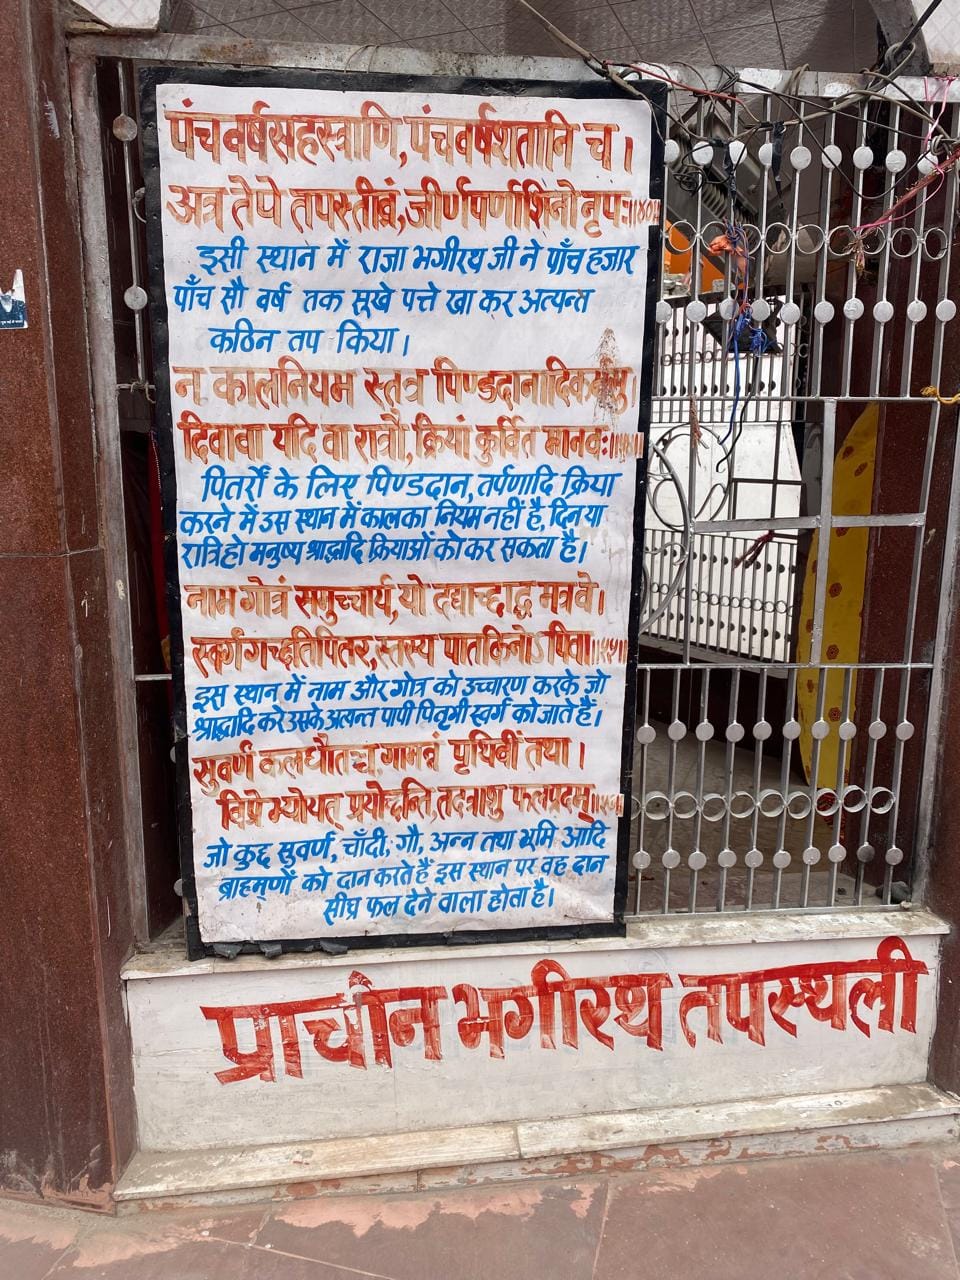 पंचवर्षसहस्त्राणि, पंचवर्षशतानि च।
अत्र तेपे तपस्तीव्रं, जीर्णपर्णाशिनो नृपः॥४०॥
इसी स्थान में राजा भगीरथ जी ने पाँच हजार
पाँच सौ वर्ष तक सूखे पत्ते खा कर अत्यन्त
कठिन तप किया।
न कालनियम स्तत्र पिण्डदानादिकर्मसु।
दिवावा यदि वा रात्रौ, क्रियां कुर्वित मानवः
पितरों के लिए पिण्डदान, तर्पणादि क्रिया
करने में उस स्थान में काल का नियम नहीं है, दिन या
रात्रि हो मनुष्य श्राद्धादि क्रियाओं को कर सकता है।
नाम गोत्रं समुच्चार्य, यो दद्याच्छाद्ध मत्रवे।
स्वर्ग गच्छतिपितर, स्तस्य पातकिनोऽपिवा
इस स्थान में नाम और गोत्र को उच्चारण करके जो
श्राद्धादि करे उसके अत्यन्त पापी पितृ भी स्वर्ग को जाते हैं।
सुवर्ण कलधौतञ्च गामन्नं पृथिवीं तथा।
विप्रेभ्योयत् प्रयोच्दन्ति तदत्राशु फलप्रदम्
जो कुछ सुवर्ण, चाँदी, गौ, अन्न तथा भूमि आदि
ब्राहम्णों को दान करते हैं इस स्थान पर वह दान
सीघ्र फल देने वाला होता है।
प्राचीन भगीरथ तपस्थली